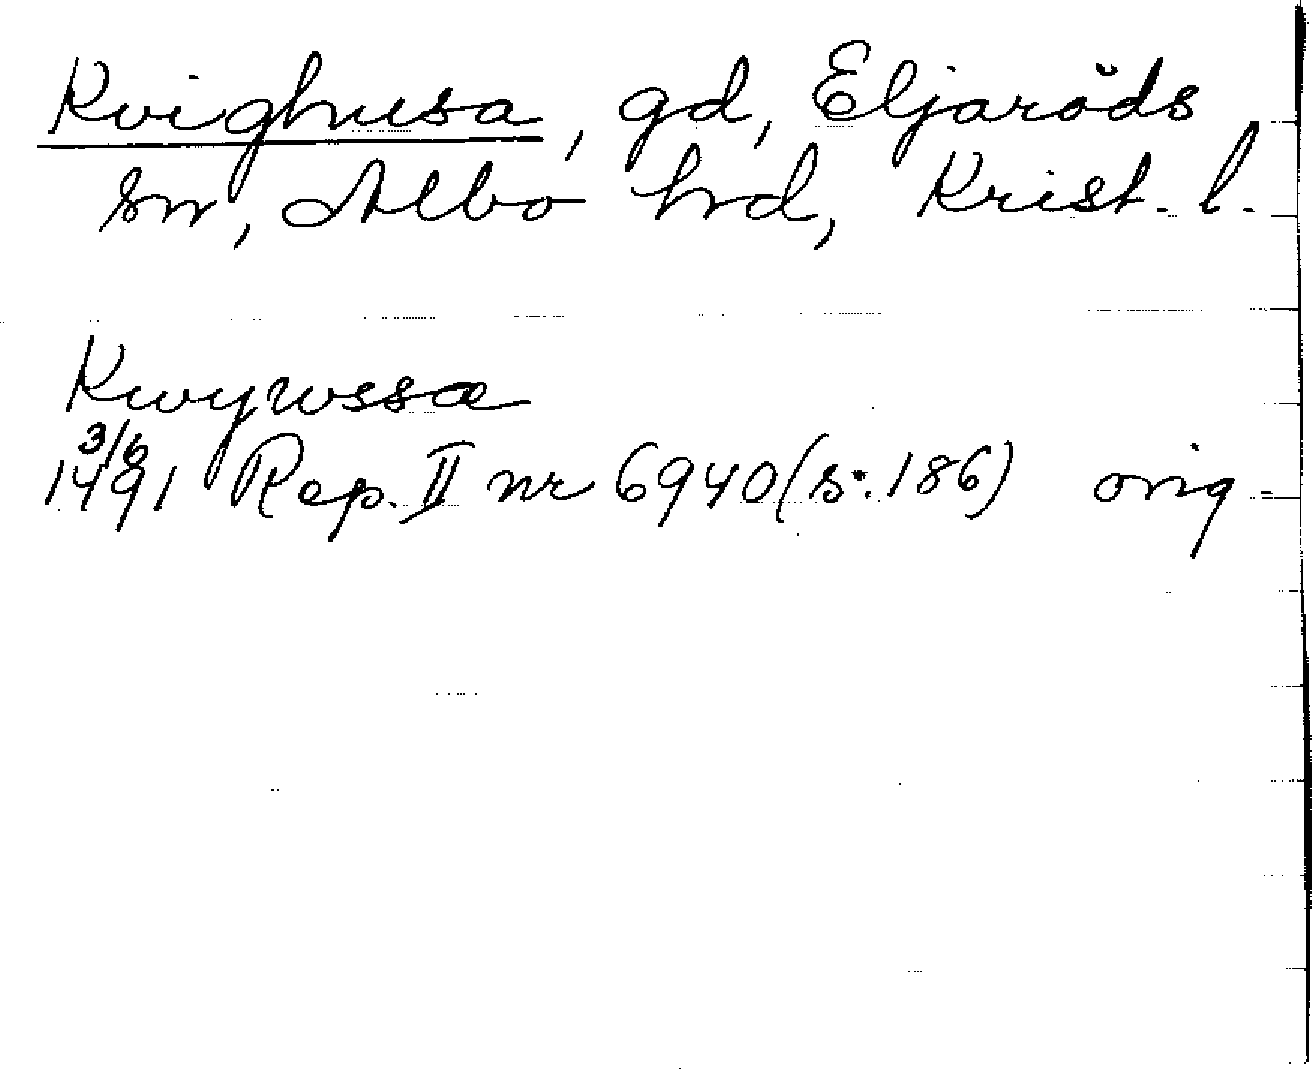 Kvighusa, gd, Eljaröds
sn, Albo hd, Krist. l.
Kwywssæ
3/6
1491 Rep. II nr 6940 (s. 186) orig